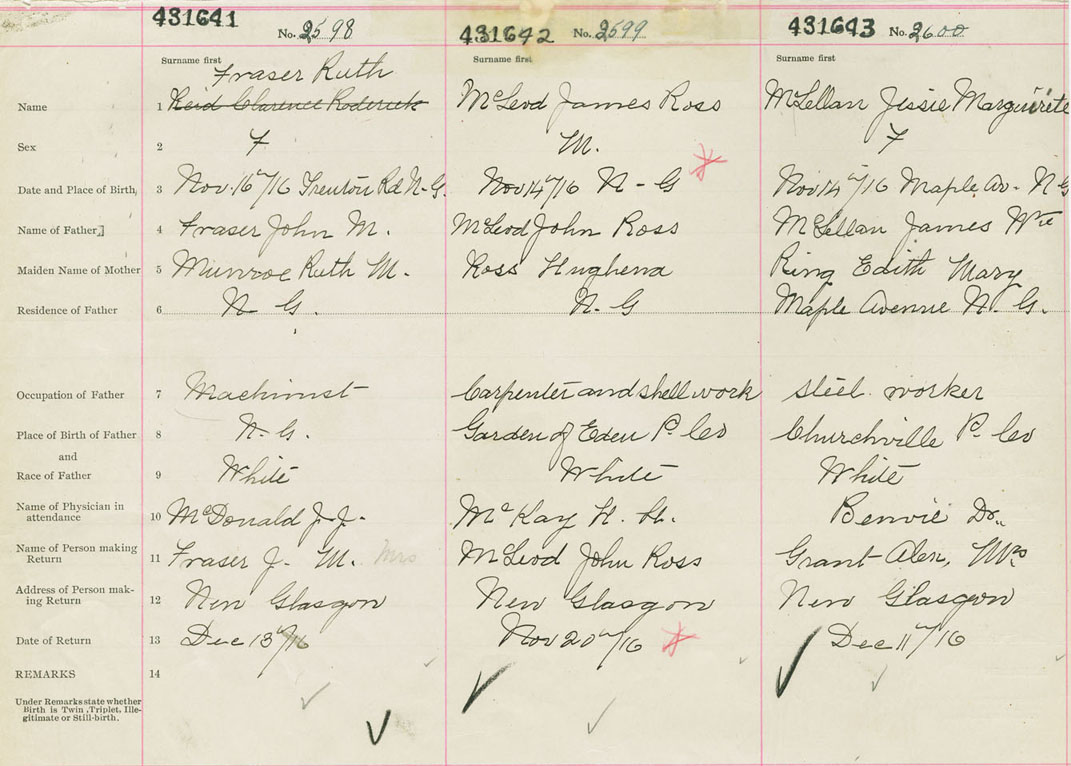 431641 No. 2598 431642 No. 2599 431643 No. 2600
Surname first Surname first Surname first
Fraser Ruth
Name 1 Reid Clarence Roderick McLeod James Ross McLellan Jessie Marguirete
Sex 2 F M. F
Date and Place of Birth, 3 Nov. 16"/16 Trenton Rd N-G. Nov 14"/16 N-G Nov 14"/16 Maple Av. N G
Name of Father, 4 Fraser John M. McLeod John Ross McLellan James Wm
Maiden Name of Mother 5 Munroe Ruth M. Ross Hughena Ring Edith Mary
Residence of Father 6 N G. N-G Maple Avenue N. G.
Occupation of Father 7 Machinist Carpenter and shell work Steel worker
Place of Birth of Father 8 N-G. Garden of Eden P. Co Churchville P. Co
and
Race of Father 9 White White White
Name of Physician in
attendance 10 McDonald J-J- McKay H. H. Benvie Dr.
Name of Person making
Return 11 Fraser J. M. Mrs McLeod John Ross Grant Alex, Mrs
Address of Person mak-
ing Return 12 New Glasgow New Glasgow New Glasgow
Date of Return 13 Dec 13"/16 Nov 20"/16 Dec 11"/16
REMARKS 14
Under Remarks state whether
Birth is Twin, Triplet, Ille-
gitimate or Still-birth.